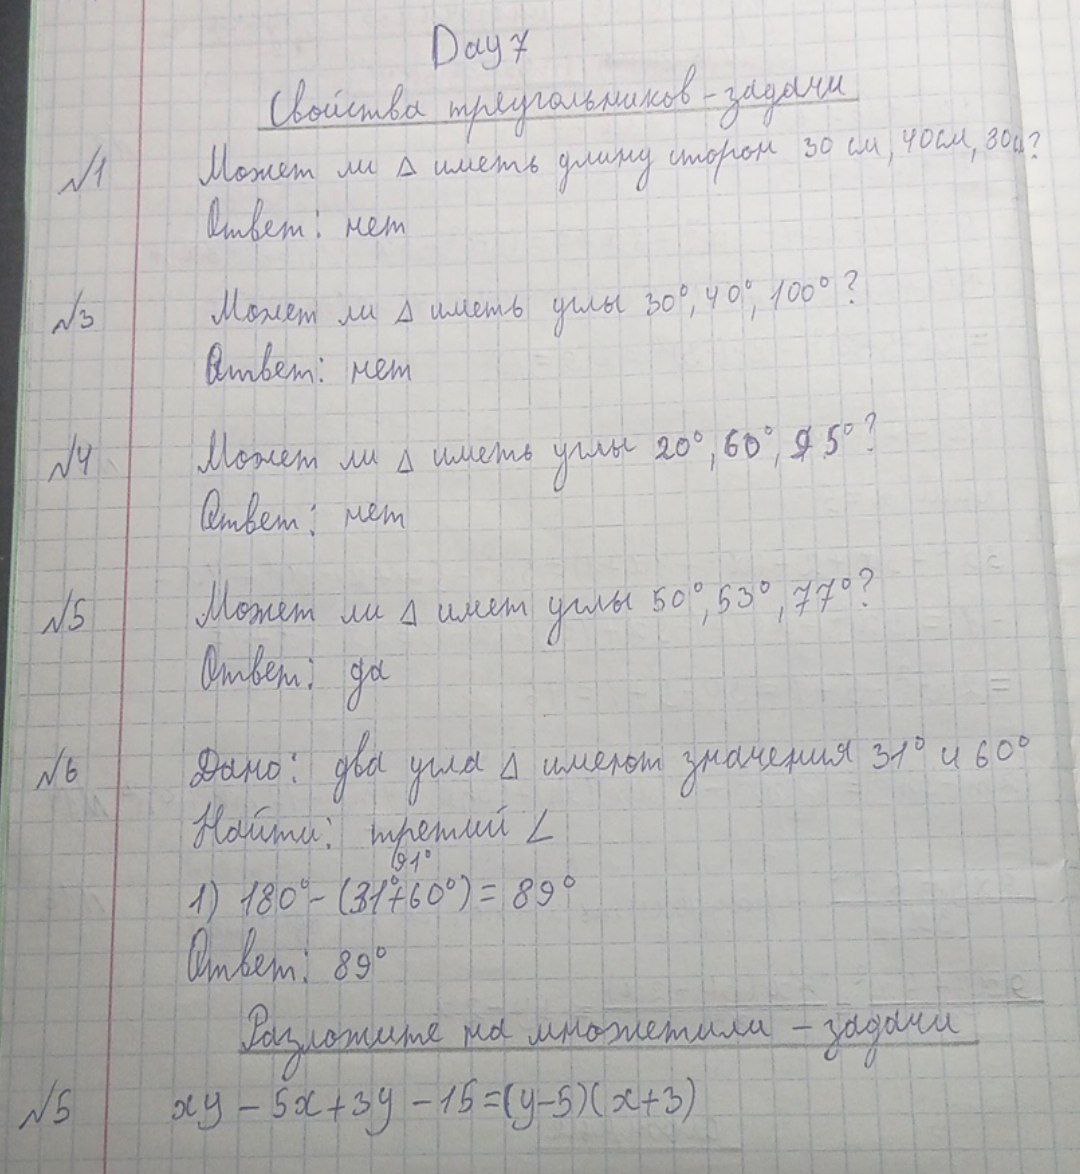 Day 7
Свойства треугольников - задачи
№1 Может ли Δ иметь длину сторон 30 см, 40 см, 80 см?
Ответ: нет
№3 Может ли Δ иметь углы 30°, 40°, 100°?
Ответ: нет
№4 Может ли Δ иметь углы 20°, 60°, 95°?
Ответ: нет
№5 Может ли Δ имет углы 50°, 53°, 77°?
Ответ: да
№6 Дано: два угла Δ имеют значения 31° и 60°
Найти: третий ∠
91°
1) 180° - (31°+60°) = 89°
Ответ: 89°
Разложите на множетили - задачи
№5 xy - 5x + 3y - 15 = (y-5)(x+3)